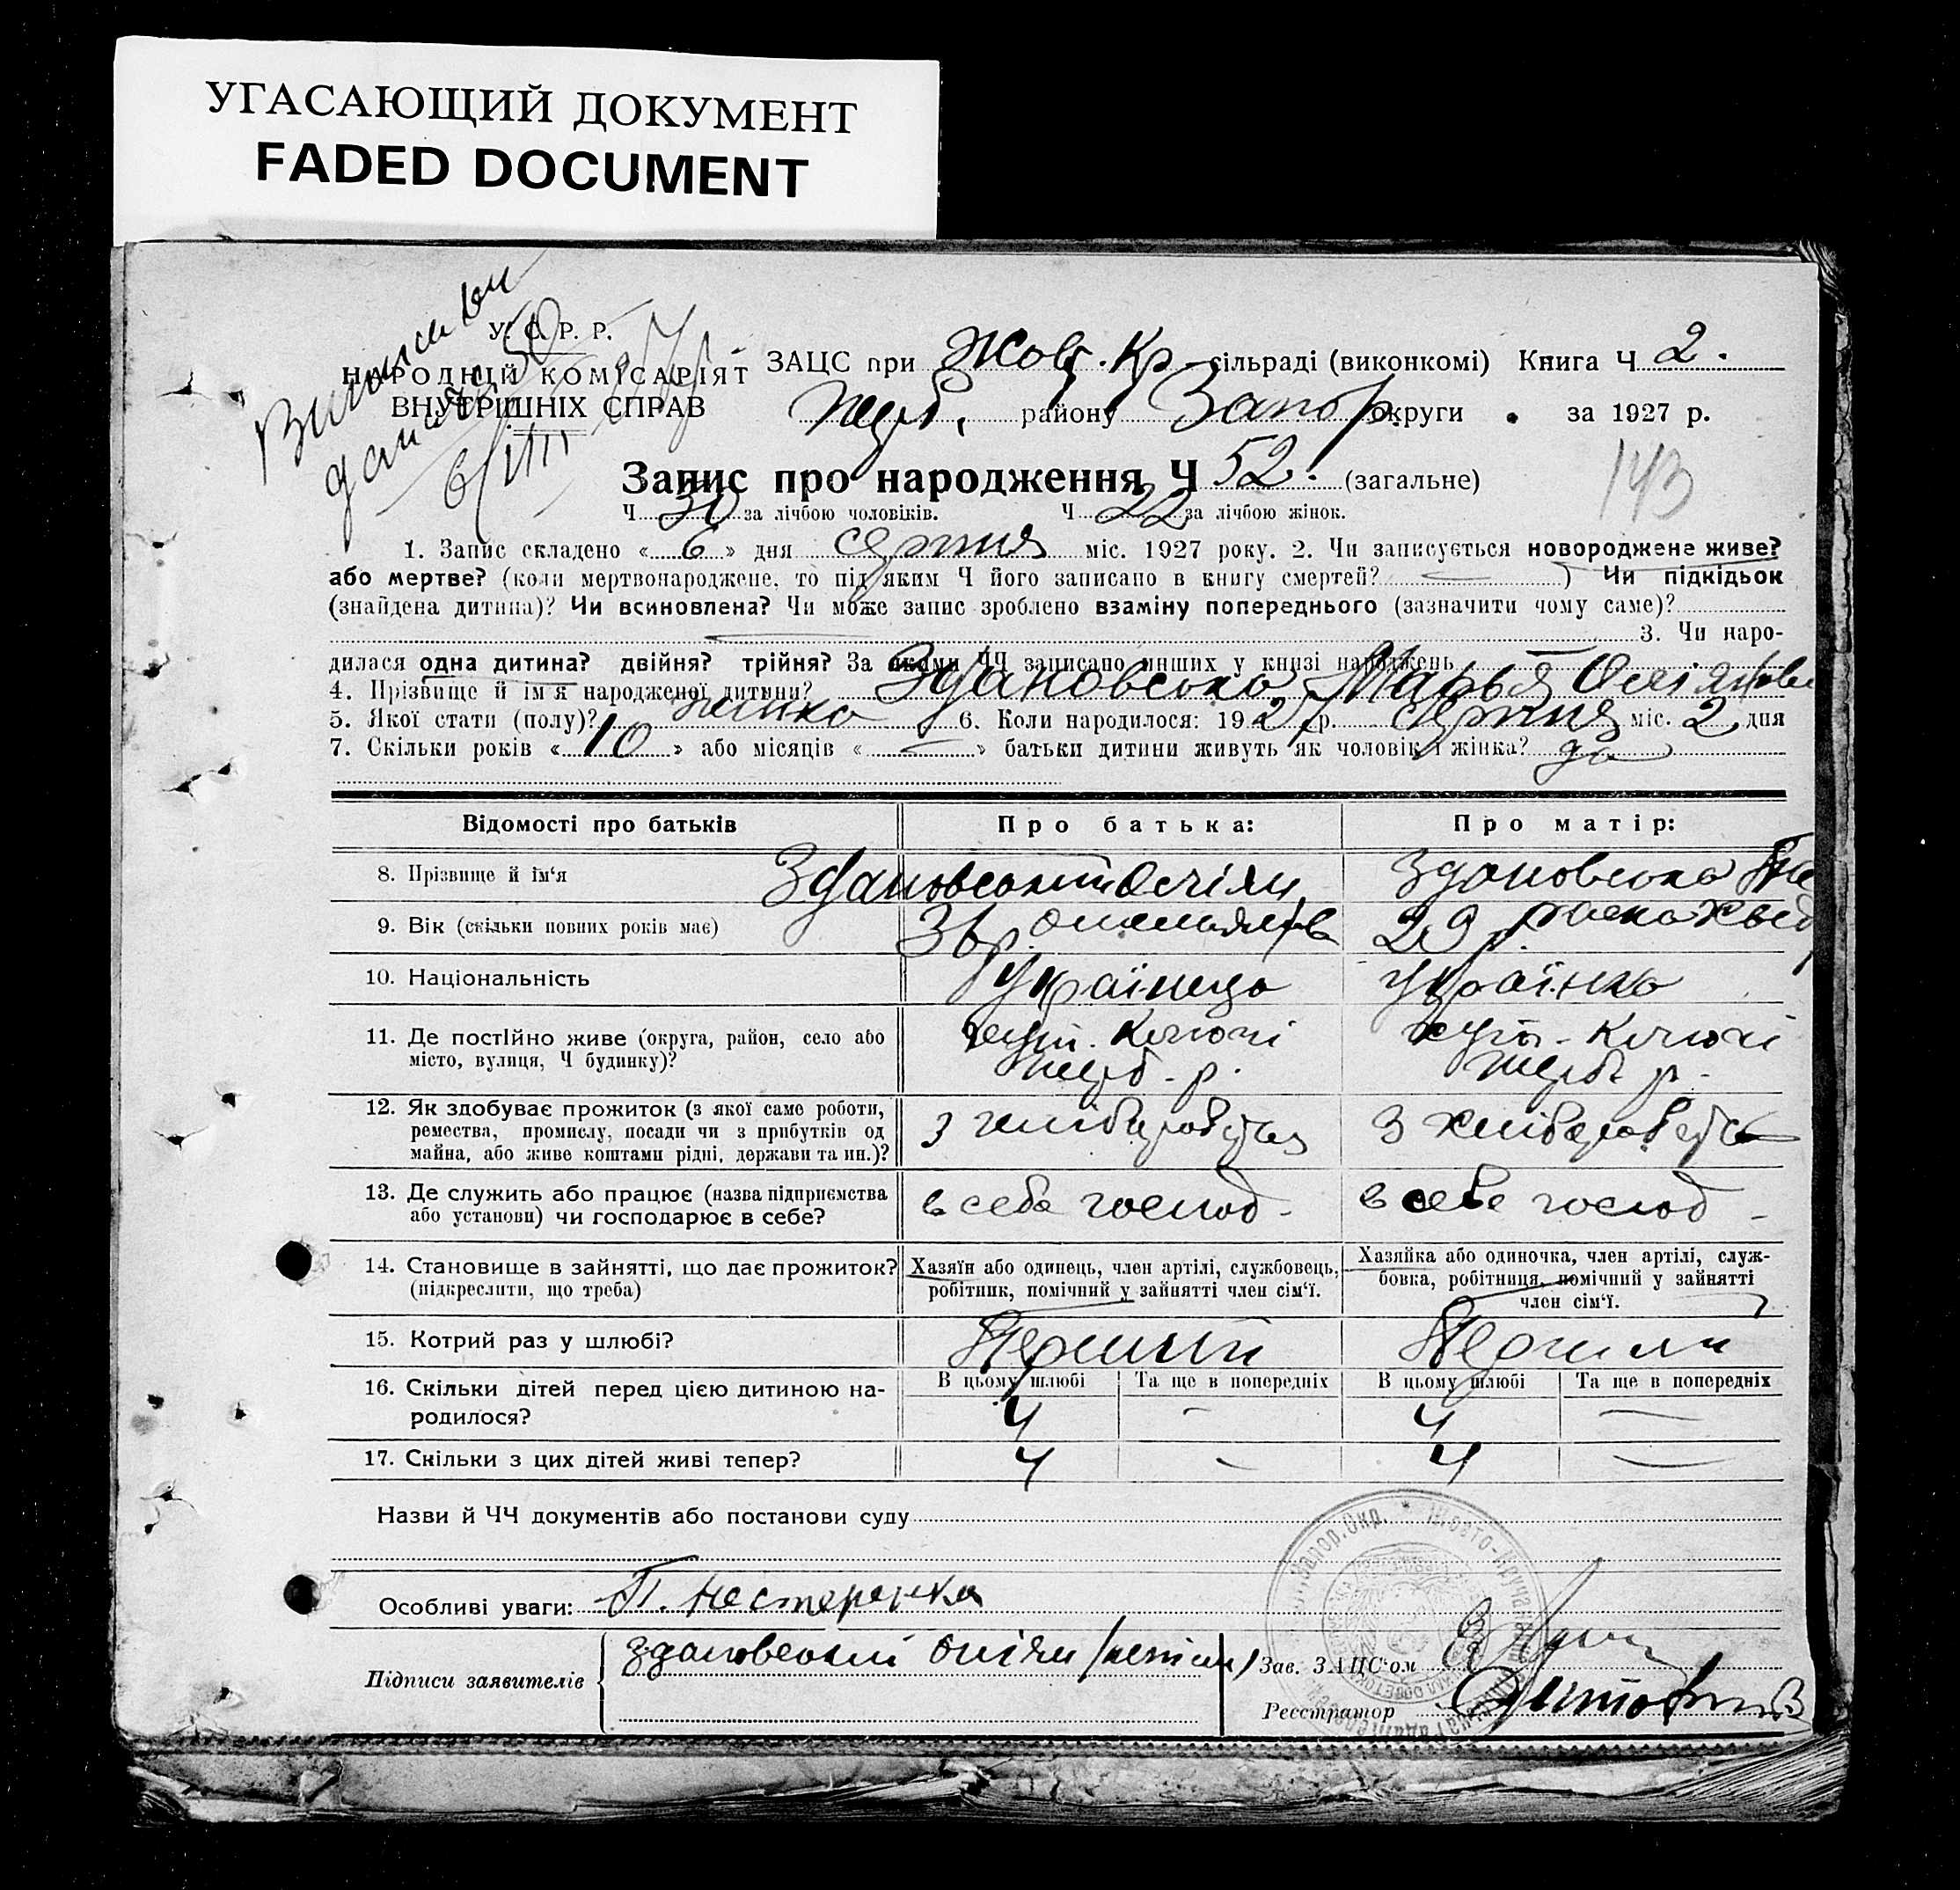 УГАСАЮЩИЙ ДОКУМЕНТ
FADED DOCUMENT
У. С. Р. Р.
НАРОДНІЙ КОМІСАРІЯТ
ВНУТРІШНІХ СПРАВ
ЗАЦС при Жовт. Кр. сільраді (виконкомі) Книга Ч 2.
району Запор. округи за 1927 р.
143
Запис про народження Ч 52. (загальне)
Ч 30 за лічбою чоловіків. Ч 22 за лічбою жінок.
1. Запис складено « 6 » дня серпня міс. 1927 року. 2. Чи записується новороджене живе?
або мертве? (коли мертвонароджене, то під яким Ч його записано в книгу смертей? — ) Чи підкідьок
(знайдена дитина)? Чи всиновлена? Чи може запис зроблено взаміну попереднього (зазначити чому саме)?
— 3. Чи наро-
дилася одна дитина? двійня? трійня? За якими ЧЧ записано инших у книзі народжень —
4. Прізвище й ім'я народженої дитини? Здановська Марья
5. Якої стати (полу)? жінка 6. Коли народилося: 1927 р. серпня міс. 2 дня
7. Скільки років « 10 » або місяців « — » батьки дитини живуть як чоловік і жінка? да
Відомості про батьків Про батька: Про матір:
8. Прізвище й ім'я Здановський Здановська
9. Вік (скільки повних років має) 29 р.
10. Національність Українець Українка
11. Де постійно живе (округа, район, село або
місто, вулиця, Ч будинку)? хут. хут.
12. Як здобуває прожиток (з якої саме роботи,
ремества, промислу, посади чи з прибутків од
майна, або живе коштами рідні, держави та ин.)? з хліборобства з хліборобства
13. Де служить або працює (назва підприємства
або установи) чи господарює в себе? в себе господ- в себе господ-
14. Становище в зайнятті, що дає прожиток?
(підкреслити, що треба)
Хазяїн або одинець, член артілі, службовець,
робітник, помічний у зайнятті член сім'ї.
Хазяйка або одиночка, член артілі, служ-
бовка, робітниця, помічний у зайнятті
член сім'ї.
15. Котрий раз у шлюбі? Перший Перший
16. Скільки дітей перед цією дитиною на-
родилося?
В цьому шлюбі Та ще в попередніх В цьому шлюбі Та ще в попередніх
4 — 4 —
17. Скільки з цих дітей живі тепер? 4 — 4 —
Назви й ЧЧ документів або постанови суду
Особливі уваги: П. Нестеренка
Підписи заявителів Здановський
Зав. ЗАЦС'ом
Реєстратор